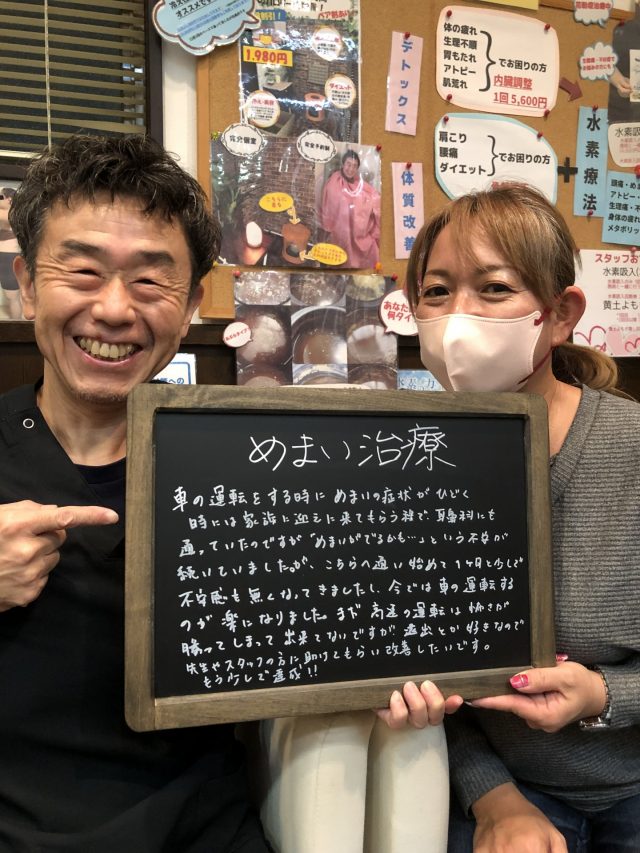 オススメで
1,980円
ダイエット
完全個室
完全予約制
デトックス
体質改善
体の疲れ
生理不順
胃もたれ
アトピー
肌荒れ
でお困りの方
内臓調整
1回 5,600円
肩こり
腰痛
ダイエット
でお困りの方
+
水素療法
スタッフお
水素吸入
黄土よも
あなた
何タイ
めまい治療
車の運転をする時に めまいの症状が ひどく
時には家族に迎えに来てもらう程で、耳鼻科にも
通っていたのですが「めまいがでるかも…」という不安が
続いていましたが、こちらへ通い始めて1ヶ月と少しで
不安感も無くなってきましたし、今では車の運転する
のが楽になりました。まだ 高速の運転は怖さが
勝ってしまって出来てないですが 遠出とか好きなので
先生やスタッフの方に助けてもらい改善したいです。
もう少しで達成!!